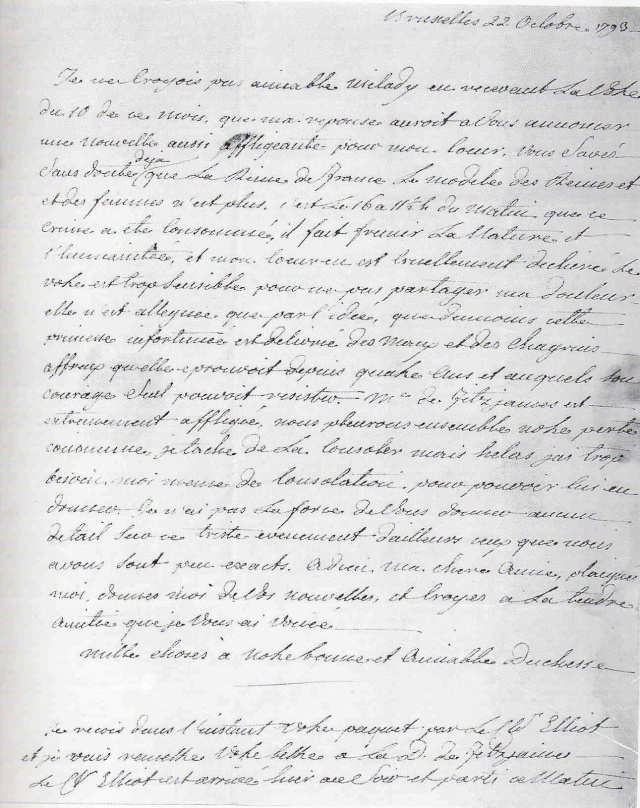 Bruxelles 22 Octobre 1793
Je ne Croyois pas aimable Milady en recevant La Votre
du 10 de ce mois, que ma reponse auroit a Vous annoncer
une nouvelle aussi affligeante pour mon Coeur. Vous Savés
Sans doute deja que La Reine de france Le modele des Reines et
et des femmes n'est plus. c'est Le 16 a 11h½ du Matin que ce
Crime a eté Consommé, il fait fremir La Nature et
l'humanitée, et mon Coeur en est Cruellement dechiré Le
votre est trop Sensible pour ne pas partager ma douleur
elle n'est allegeée que par l'idée, que du moins cette
princesse infortunée est delivrée des Maux et des Chagrins
affreux qu'elle eprouvoit depuis quatre Ans et auquels Son
Courage Seul pouvoit resister. Me de Fitzjames est
extremement affligée, nous pleurons ensemble notre perte
Commune, je tache de La Consoler mais helas j'ai trop
besoin, moi meme de Consolation, pour pouvoir lui en
donner. Je n'ai pas La force de Vous donner aucun
detail Sur ce triste evenement d'ailleurs ceux que nous
avons Sont peu exacts. Adieu, ma chere Amie, plaignes
moi, donnes moi de Vos nouvelles, et Croyes a La tendre
Amitié que je Vous ai Vouée
mille choses a notre bonne et Aimable Duchesse
Je recois dans l'instant Votre paquet par Le Elliot
et je vais remettre Votre lettre a La D. de Fitzjames
Le Elliot est arrivé hier au Soir et parti ce Matin